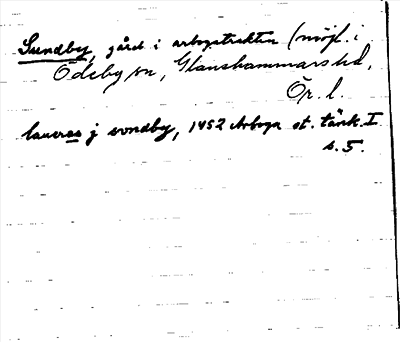 Sundby, gård i arbogatrakten (möjl. i
Ödeby sn, Glanshammars hd,
Ör. l.
laurens j sondby, 1452 Arboga st. tänk. I
s. 5.